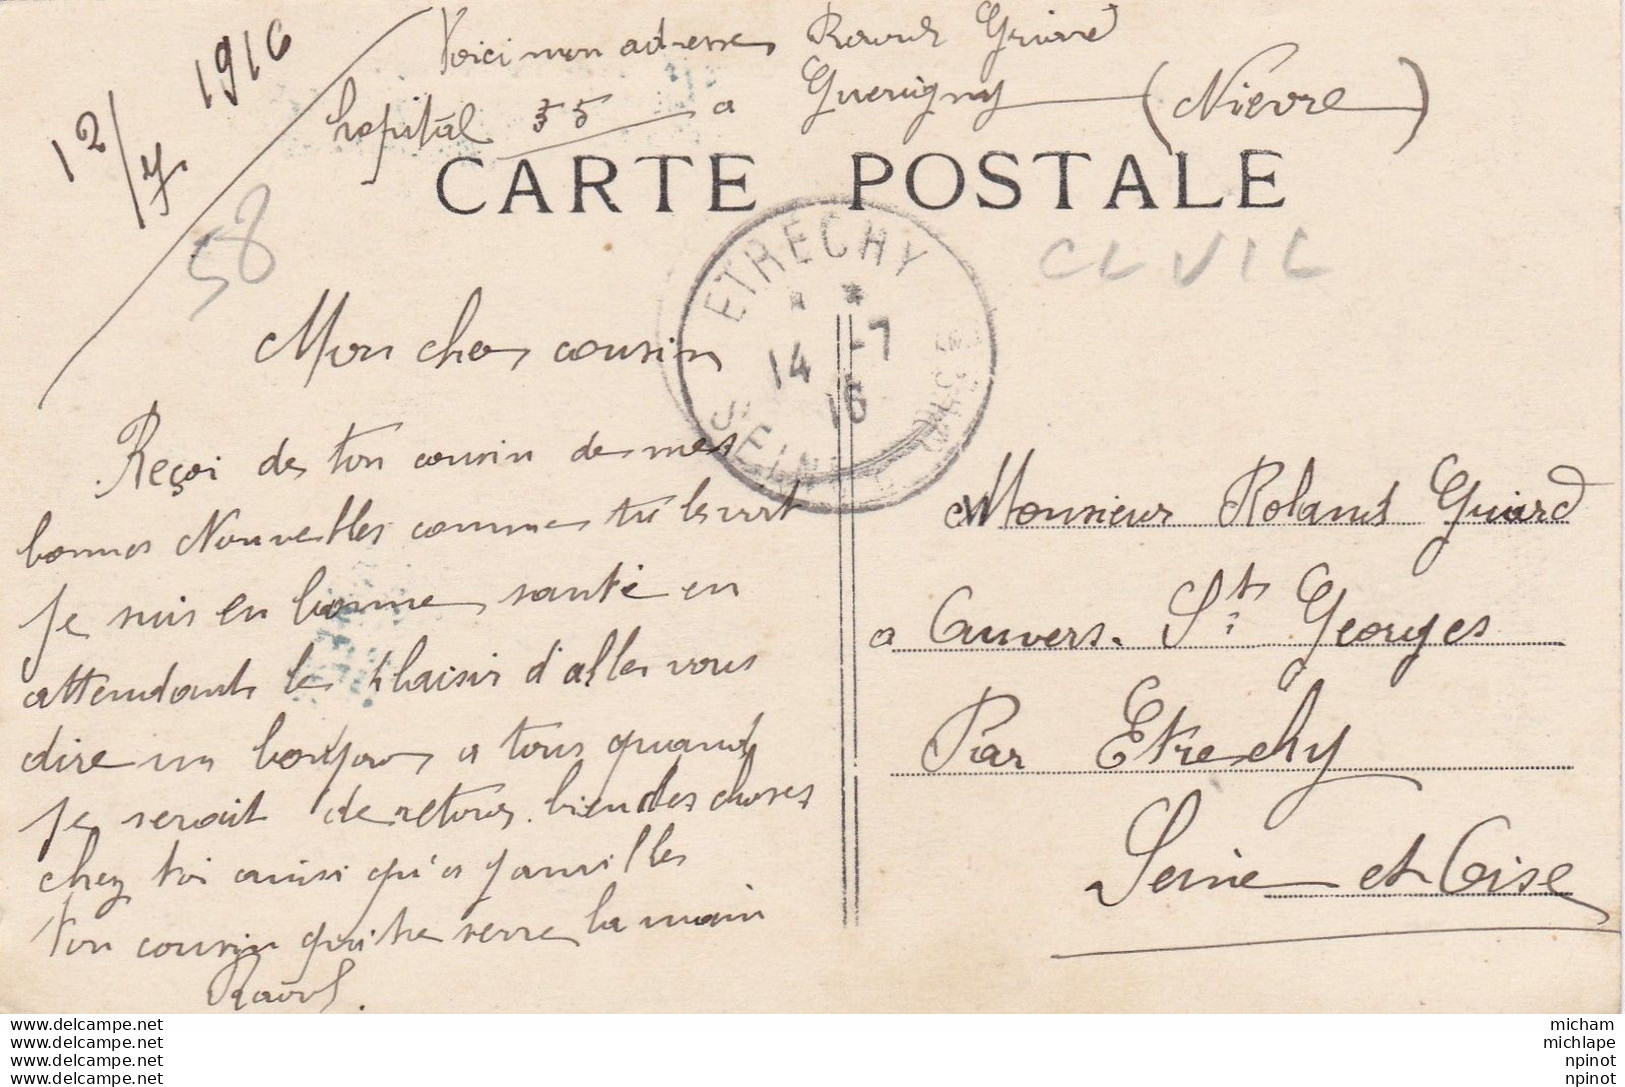 12/7. 1916
Voici mon adresse Raoul Guiard
hopital 35 a Guerigny (Nievre)
CARTE POSTALE
58
CLVIL
ETRECHY
14 -7
16
SEINE ET OISE
Mon cher cousin
Reçoi de ton cousin de mes
bonnes Nouvelles comme tu le voit
Je suis en bonne santé en
attendant le plaisir d'aller vous
dire un bonjour a tous quand
Je serait de retour. bien des choses
chez toi ainsi qu'a Janville
Ton cousin qui te serre la main
Raoul.
Monsieur Roland Guiard
a Auvers. St Georges
Par Etrechy
Seine et Oise
www.delcampe.net
www.delcampe.net
www.delcampe.net
www.delcampe.net
micham
michlape
npinot
npinot